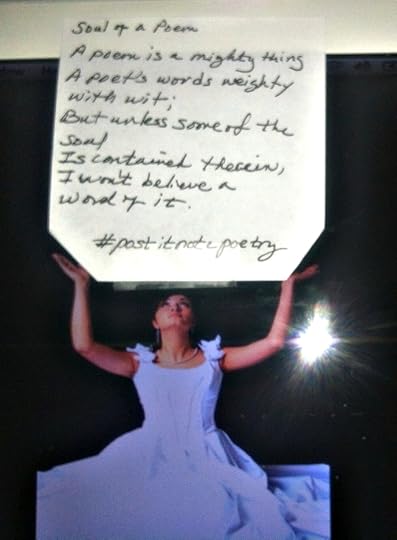 Soul of a Poem
A poem is a mighty thing
A poet's words weighty
with wit;
But unless some of the
soul
Is contained therein,
I won't believe a
word of it.
#postitnotepoetry